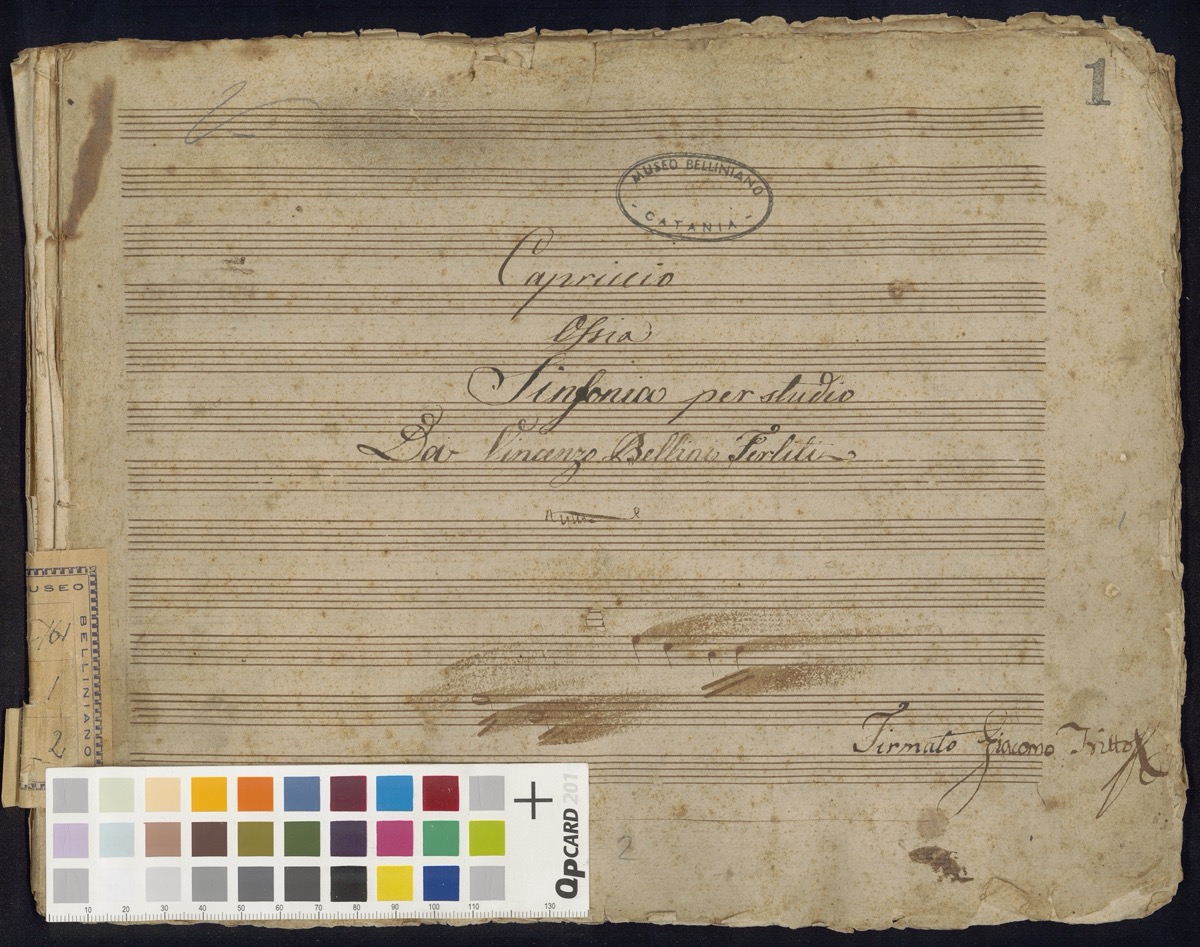 1
MUSEO BELLINIANO
- CATANIA -
Capriccio
Ossia
Sinfonia per studio
Da Vincenzo Bellini Ferliti
Firmato Giacomo Tritto
USEO
BELLINIANO
1
2
2
QPCARD 201
10 20 30 40 50 60 70 80 90 100 110 130